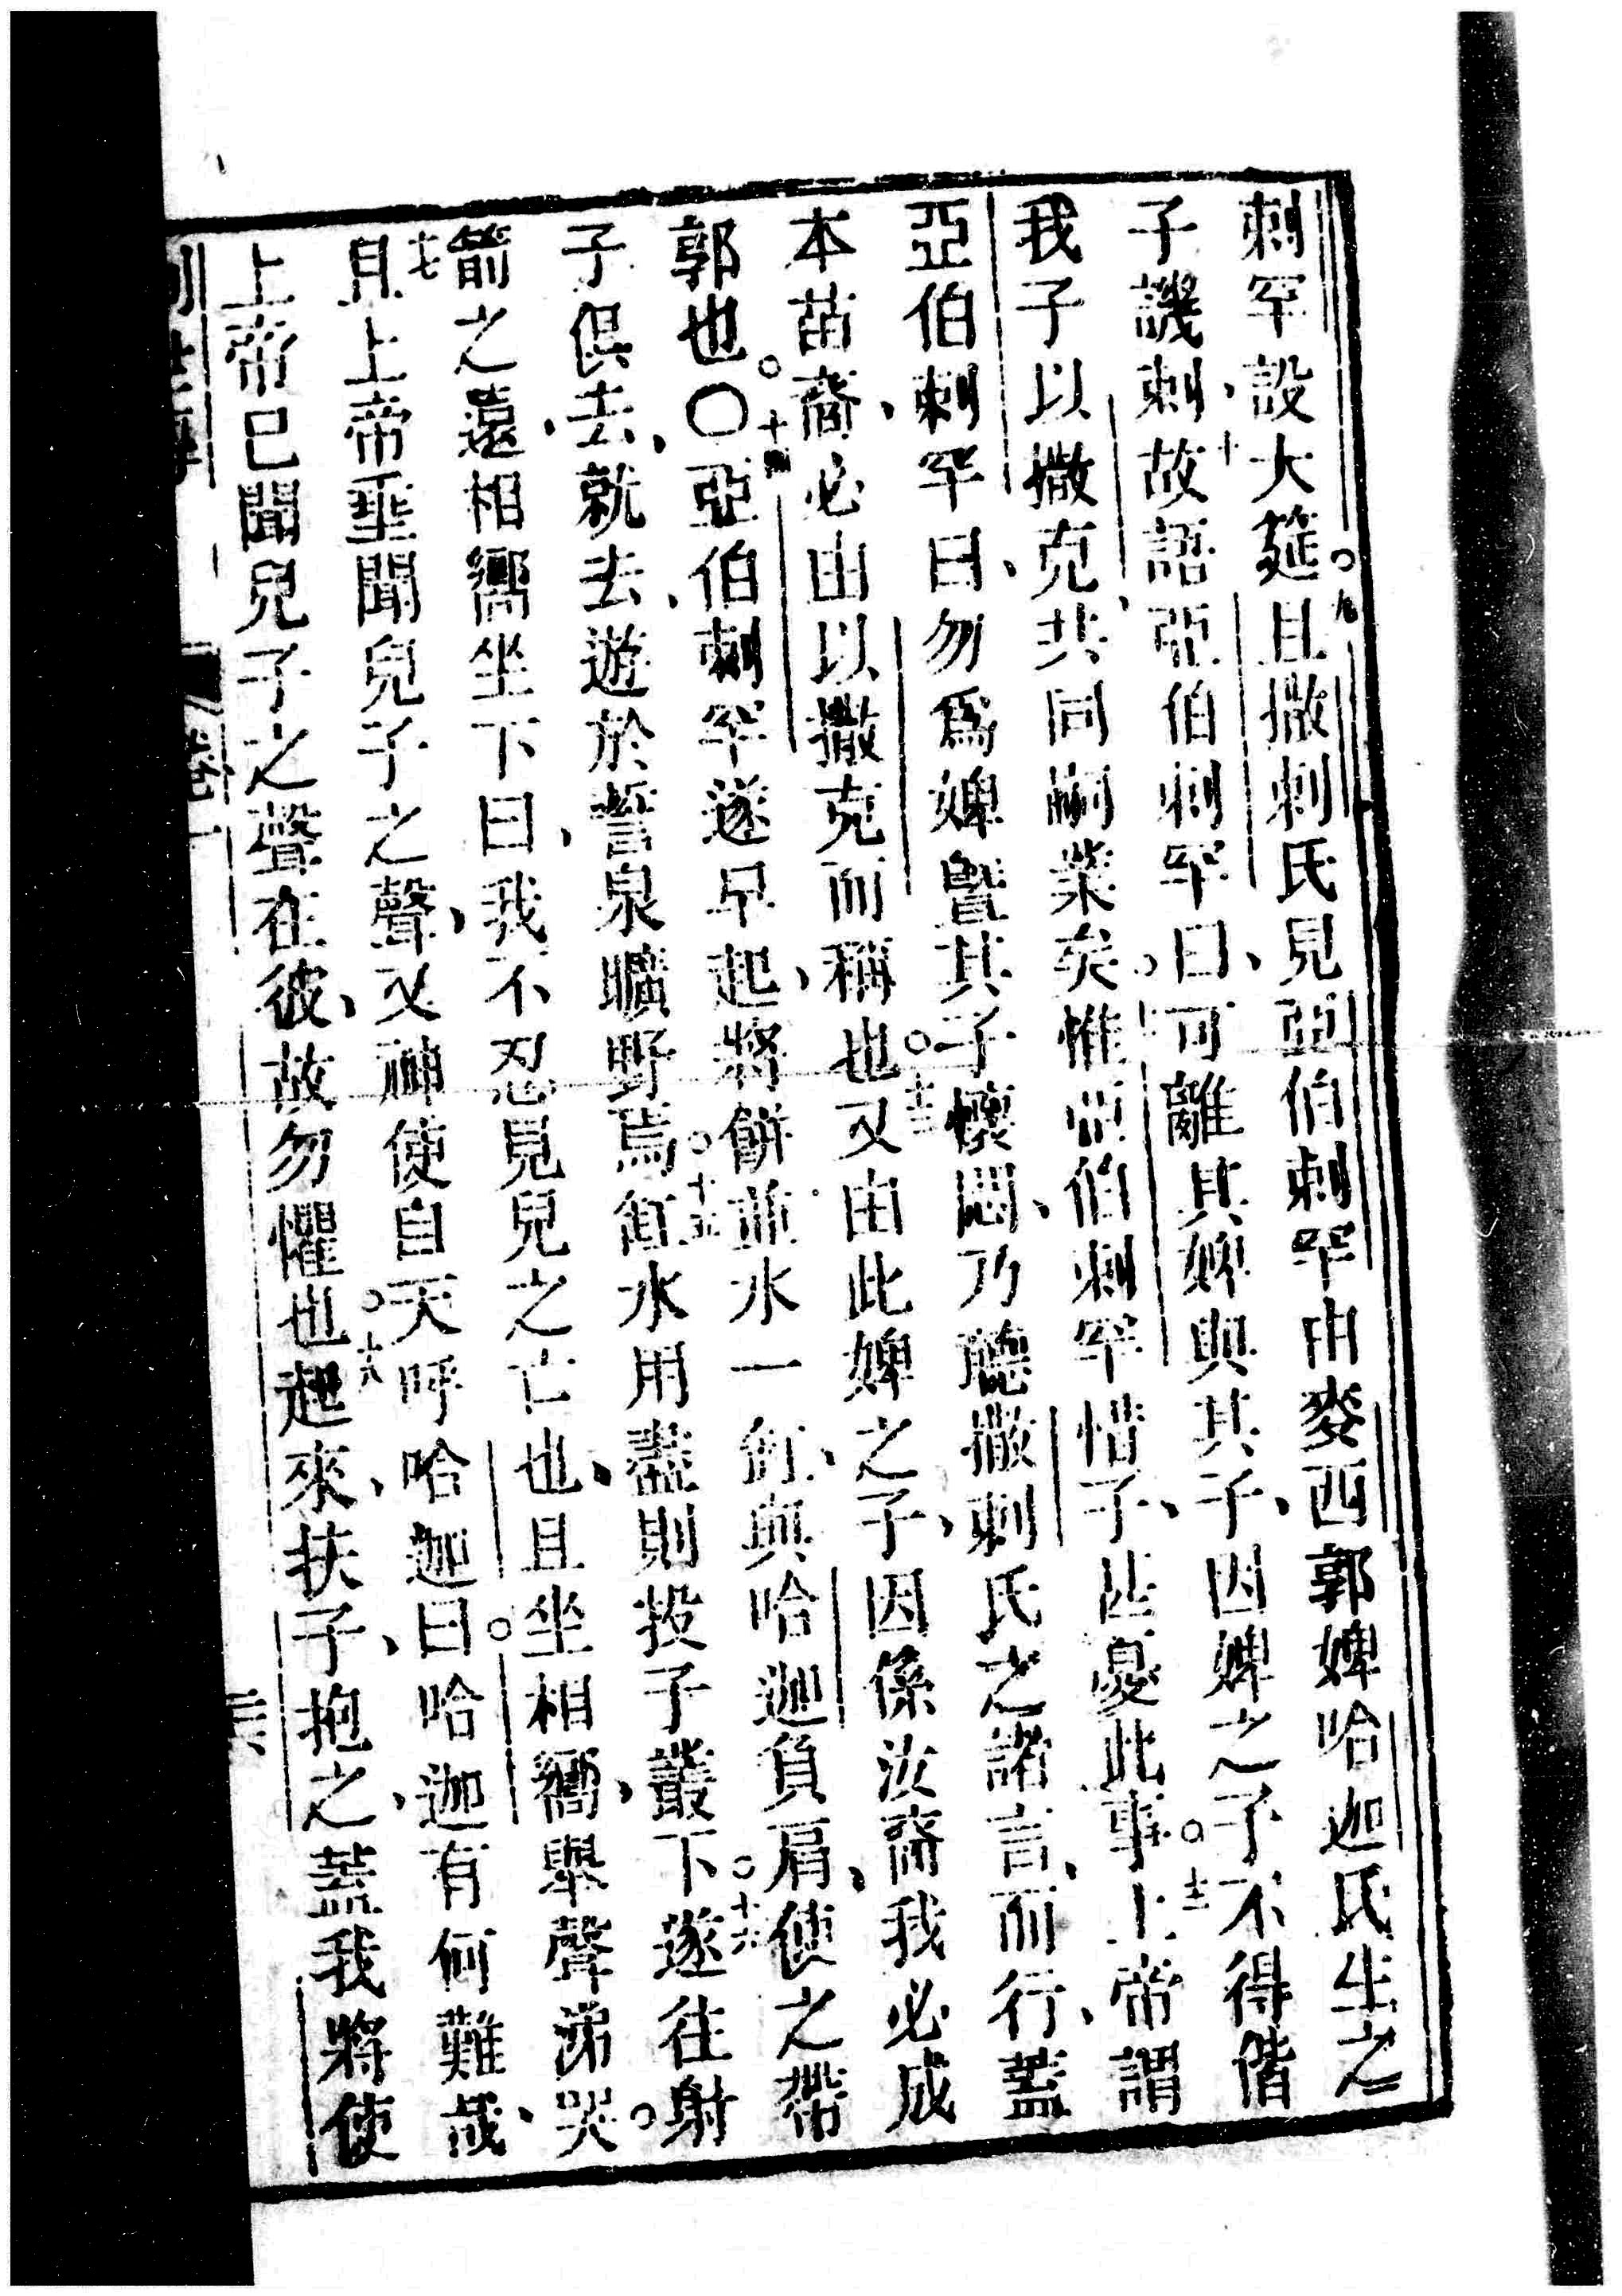 剌罕設大筵。九且撒剌氏見亞伯剌罕由麥西郭婢哈迦氏生之
子譏刺、十故語亞伯剌罕曰、可離其婢與其子、因婢之子不得偕
我子以撒克、共同嗣業矣。惟亞伯剌罕惜子、甚憂此事。十二上帝謂
亞伯剌罕曰、勿爲婢曁其子懷悶、乃聽撒剌氏之諸言、而行、蓋
本苗裔、必由以撒克而稱也。十三又由此婢之子、因係汝裔、我必成
郭也。〇十四亞伯剌罕遂早起、將餅並水一缸、與哈迦負肩、使之帶
子俱去、就去、遊於誓泉曠野焉。十五缸水用盡、則投子叢下。十六遂往射
箭之遠、相嚮坐下曰、我不忍見兒之亡也、且坐相嚮、舉聲涕哭。
十七且上帝垂聞兒子之聲、又神使自天呼哈迦曰。哈迦有何難哉、
上帝已聞兒子之聲在彼、故勿懼也。十八起來、扶子、抱之、蓋我將使